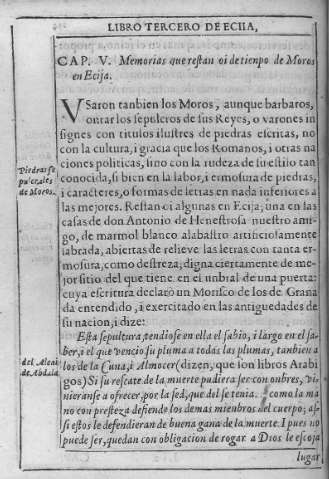 LIBRO TERCERO DE ECIIA,
CAP. V. Memorias que restan oi de tienpo de Moros
en Ecija.
VSaron tanbien los Moros, aunque barbaros,
onrar los sepulcros de sus Reyes, o varones in
signes con titulos ilustres de piedras escritas, no
con la cultura, i gracia que los Romanos, i otras na
ciones politicas, sino con la rudeza de su estilo tan
Piedras se
pulcrales
de Moros.
conocida, si bien en la labor, i ermosura de piedras,
i caracteres, o formas de letras en nada inferiores a
las mejores. Restan oi algunas en Ecija; una en las
casas de don Antonio de Henestrosa nuestro ami-
go, de marmol blanco alabastro artificiosamente
labrada, abiertas de relieve las letras con tanta er-
mosura, como destreza; digna ciertamente de me-
jor sitio del que tiene en el unbral de una puerta:
cuya escritura declarò un Morisco de los de Grana
da entendido, i exercitado en las antiguedades de
su nacion, i dize:
Esta sepultura, tendiose en ella el sabio, i largo en el sa-
ber, i el que vencio su pluma a todas las plumas, tanbien a
del Alcai
de Abdala.
los de la Cuna, i Almocer (dizen, que son libros Arabi
gos) Si su rescate de la muerte pudiera ser con onbres, vi-
nieranse a ofrecer, por la sed, que del se tenia. como la ma
no con presteza defiende los demas mienbros del cuerpo; as-
si estos le defendieran de buena gana de la muerte. I pues no
puede ser, quedan con obligacion de rogar a Dios le escoja
lugar